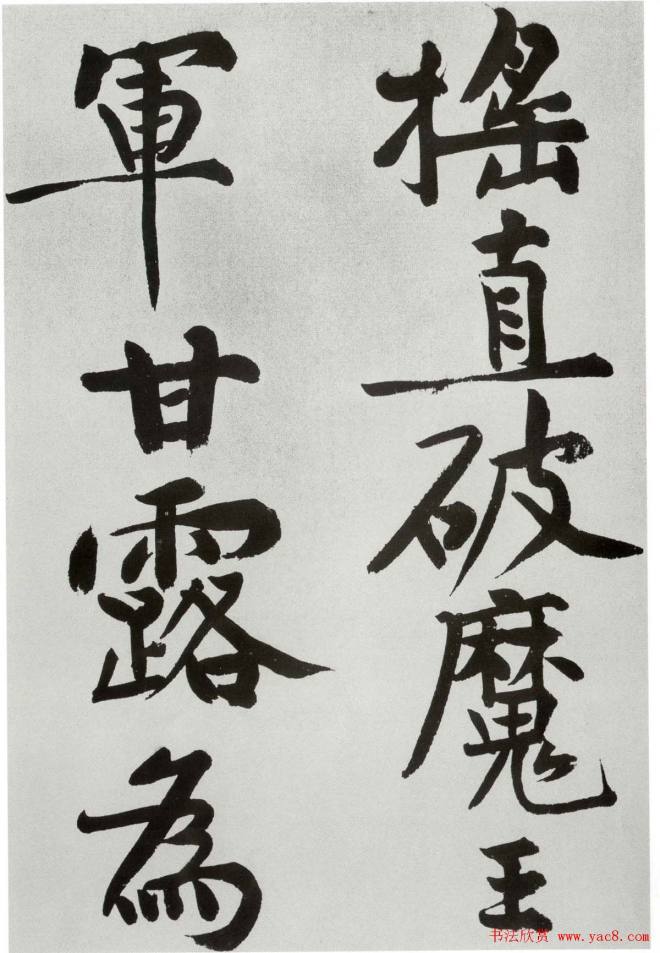 搖直破魔王
軍甘露為
书法欣赏 www.yac8.com